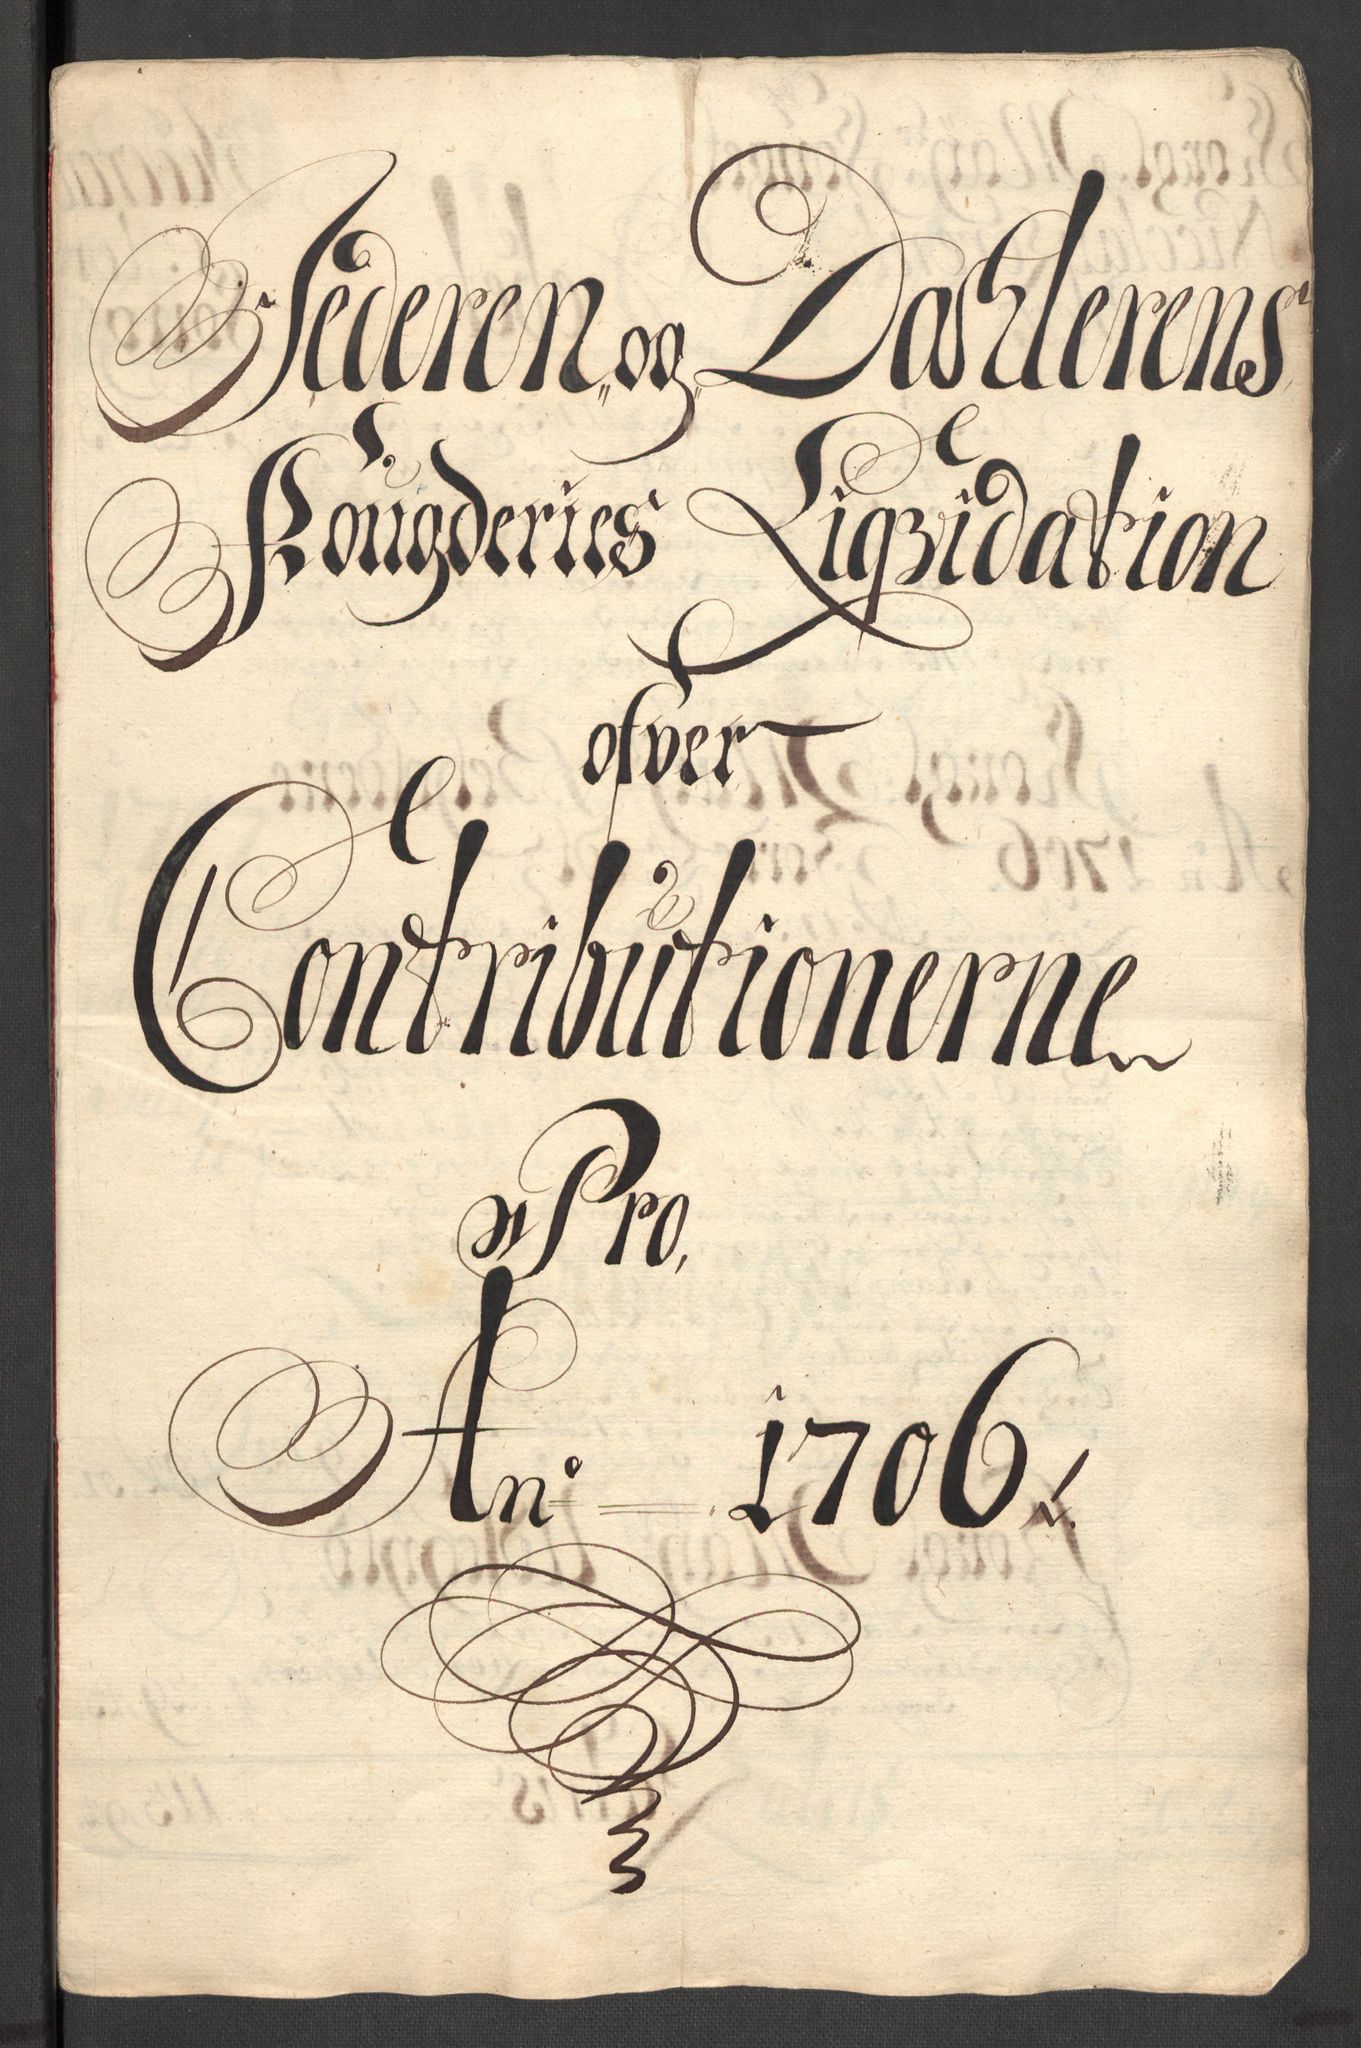 Jederen og Dahlerens
Fougderies Liqvidation
ofver
Contributionerne
Pro
An: 1706